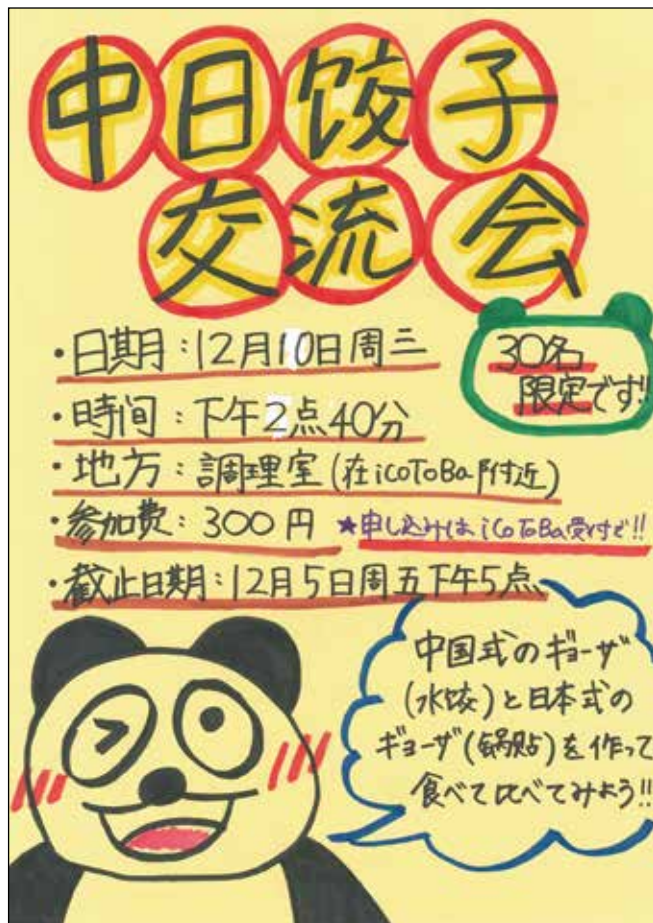 中日饺子
交流会
30名
限定です!!
・日期：12月10日周三
・時间：下午2点40分
・地方：調理室(在iCoToBa附近)
・参加费：300円 ★申し込みは、iCoToBa受付で!!
・截止日期：12月5日周五下午5点
中国式のギョーザ
(水饺)と日本式の
ギョーザ(锅贴)を作って
食べて比べてみよう!!